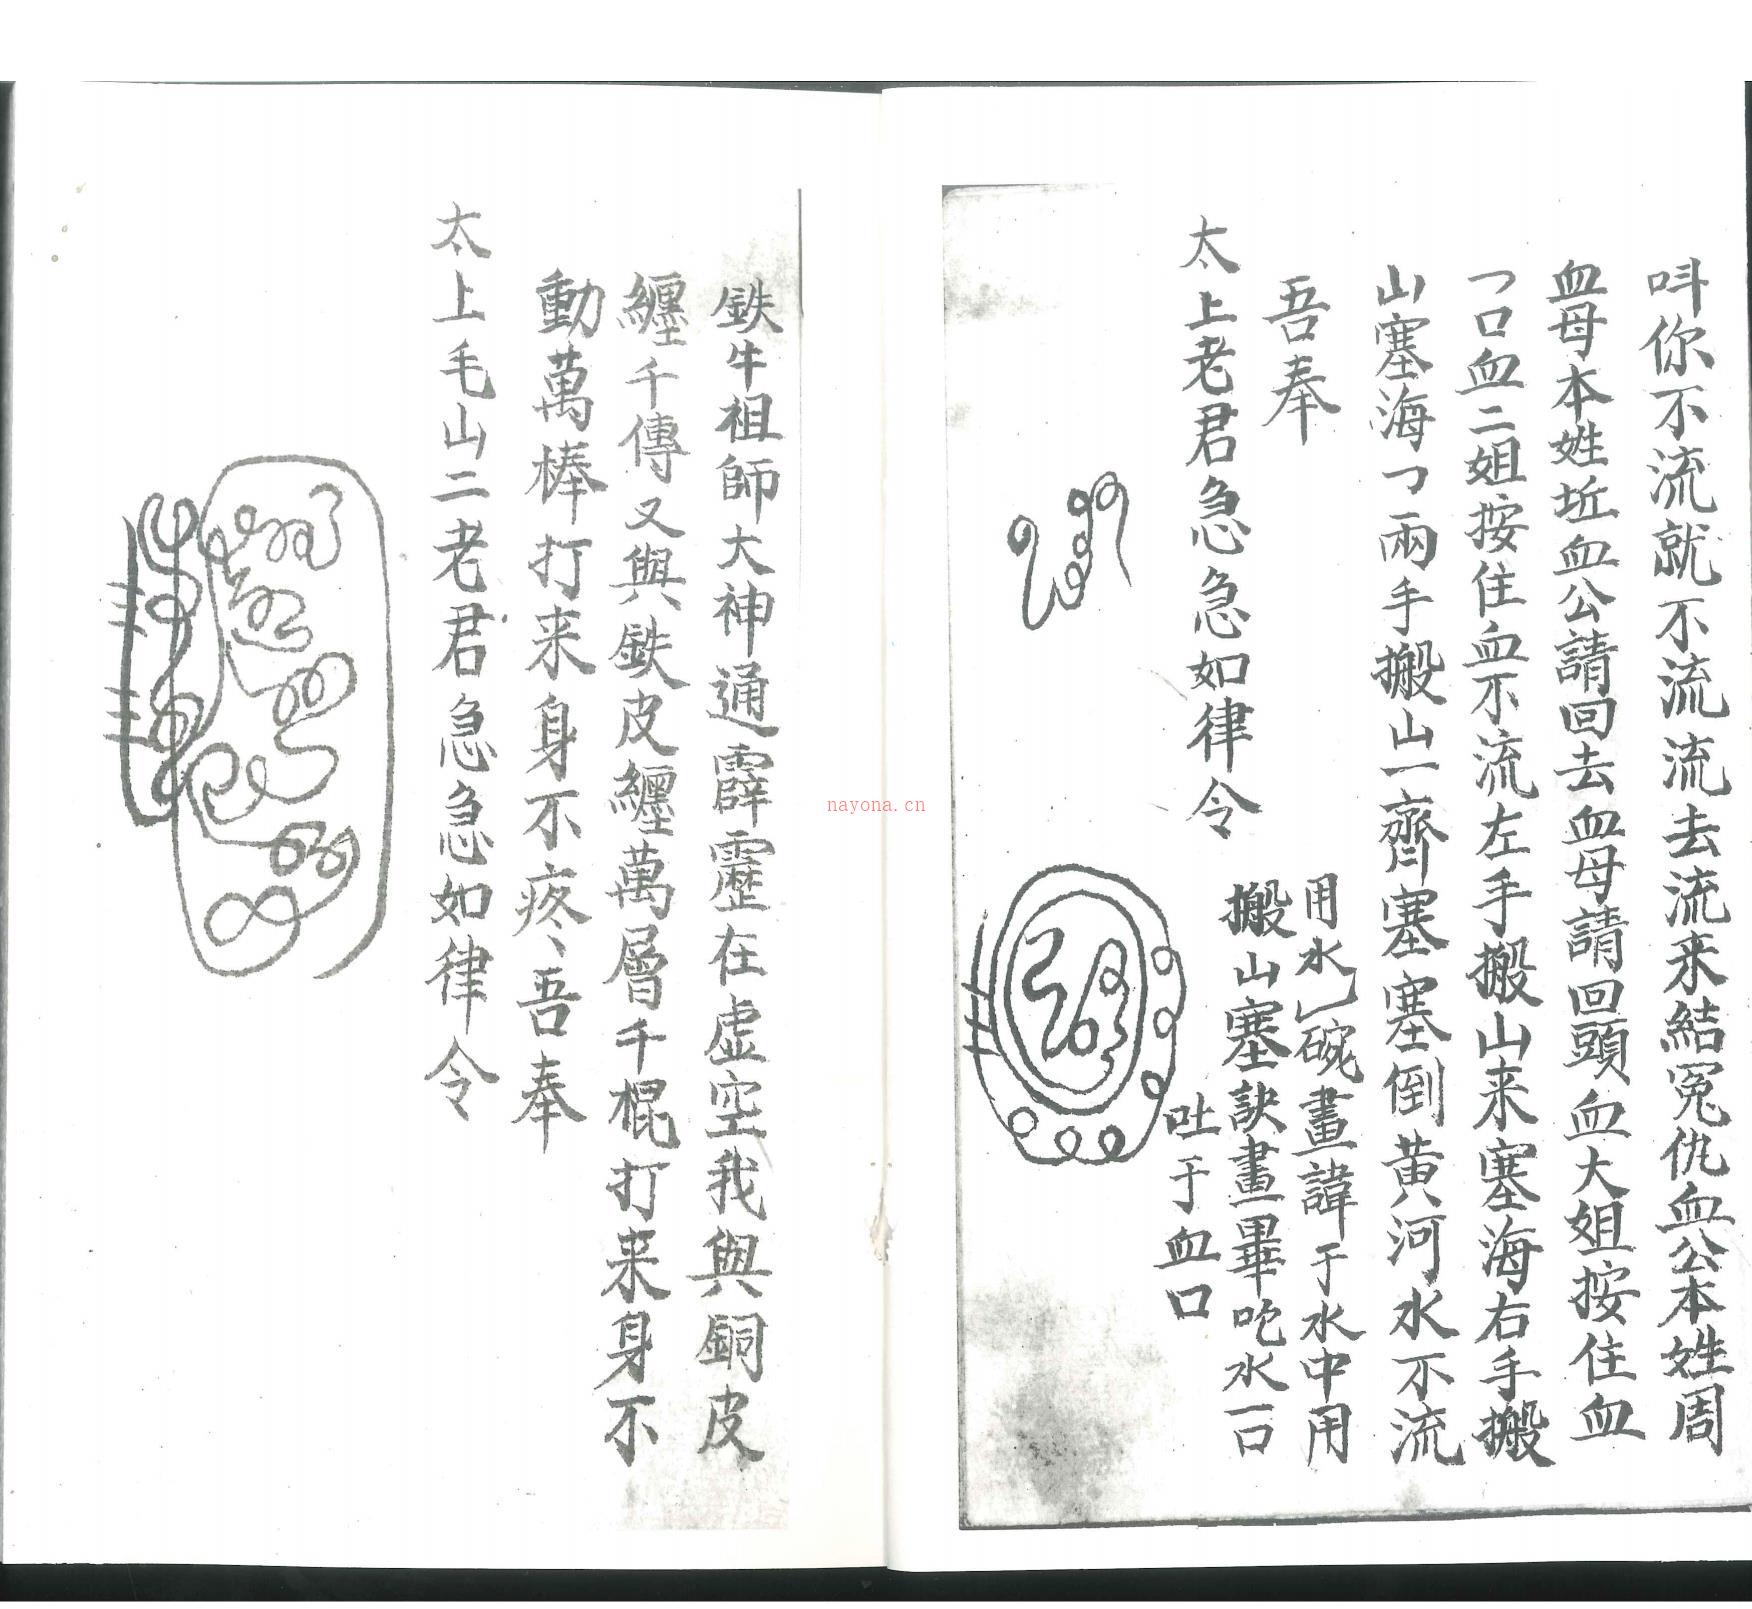 呌你不流就不流流去流来結冤仇血公本姓周
血母本姓坵血公請回去血母請回頭血大姐按住血
乛口血二姐按住血不流左手搬山来塞海右手搬
山塞海乛兩手搬山一齊塞塞倒黄河水不流
吾奉
太上老君急急如律令
用水乚碗畫諱于水中用
搬山塞訣畫畢吃水一口
吐于血口
鉄牛祖師大神通霹靂在虚空我與銅皮
纒千傳又與鉄皮纒萬層千棍打来身不
動萬棒打来身不疼丶吾奉
太上毛山二老君急急如律令
nayona.cn